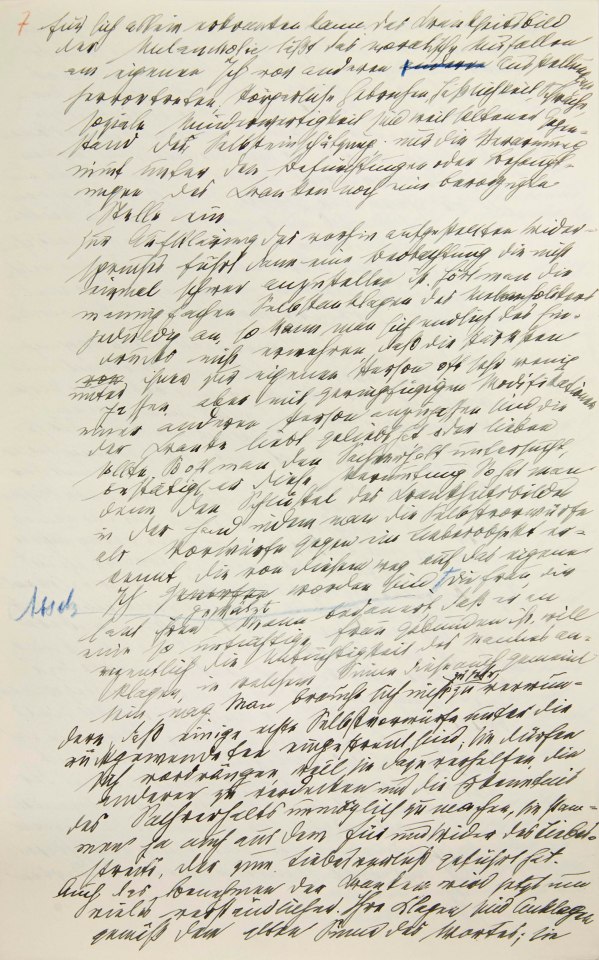 7 für sich allein erkranken kann. Das Krankheitsbild
der Melancholie läßt das moralische Mißfallen
am eigenen Ich vor anderen Ausstellungen
hervortreten, körperliche Gebrechen, Häßlichkeit, Schwäche,
soziale Minderwertigkeit sind weit seltener Gegen-
stand der Selbsteinschätzung, nur die Verarmung
nimmt unter den Befürchtungen oder Behaupt-
ungen des Kranken noch eine bevorzugte
Stelle ein
Zur Aufklärung des vorhin aufgestellten Wider-
spruchs führt dann eine Beobachtung die nicht
einmal schwer anzustellen ist. Hört man die
mannigfachen Selbstanklagen des Melancholikers
geduldig an, so kann man sich endlich des Ein-
drucks nicht erwehren daß die stärksten
von
unter ihnen zur eigenen Person oft sehr wenig
passen, aber mit geringfügigen Modifikationen
einer anderen Person anzupassen sind die
der Kranke liebt geliebt hat oder lieben
sollte. So oft man den Sachverhalt untersucht,
bestätigt er diese Vermutung. So hat man
denn den Schlüssel des Krankheitsbildes
in der Hand indem man die Selbstvorwürfe
als Vorwürfe gegen ein Liebesobjekt er-
kennt die von diesem weg auf das eigene
Ich geworfen worden sind. Die Frau, die
gewälzt
Absatz
laut ihren Mann bedauert, daß er an
eine so untüchtige Frau gebunden ist, will
eigentlich die Untüchtigkeit des Mannes an-
klagen, in welchem Sinne diese auch gemeint
sein mag. Man braucht sich nicht zu sehr zu verwun-
dern, daß einige echte Selbstvorwürfe unter die
rückgewendeten eingestreut sind; sie dürfen
sich vordrängen weil sie dazu verhelfen die
anderen zu verdecken und die Erkenntnis
des Sachverhalts unmöglich zu machen, sie stam-
men ja auch aus dem Für und Wider des Liebes-
streits, der zum Liebesverlust geführt hat.
Auch das Benehmen der Kranken wird jetzt um
vieles verständlicher. Ihre Klagen sind Anklagen
gemäß dem alten Sinne des Wortes; sie